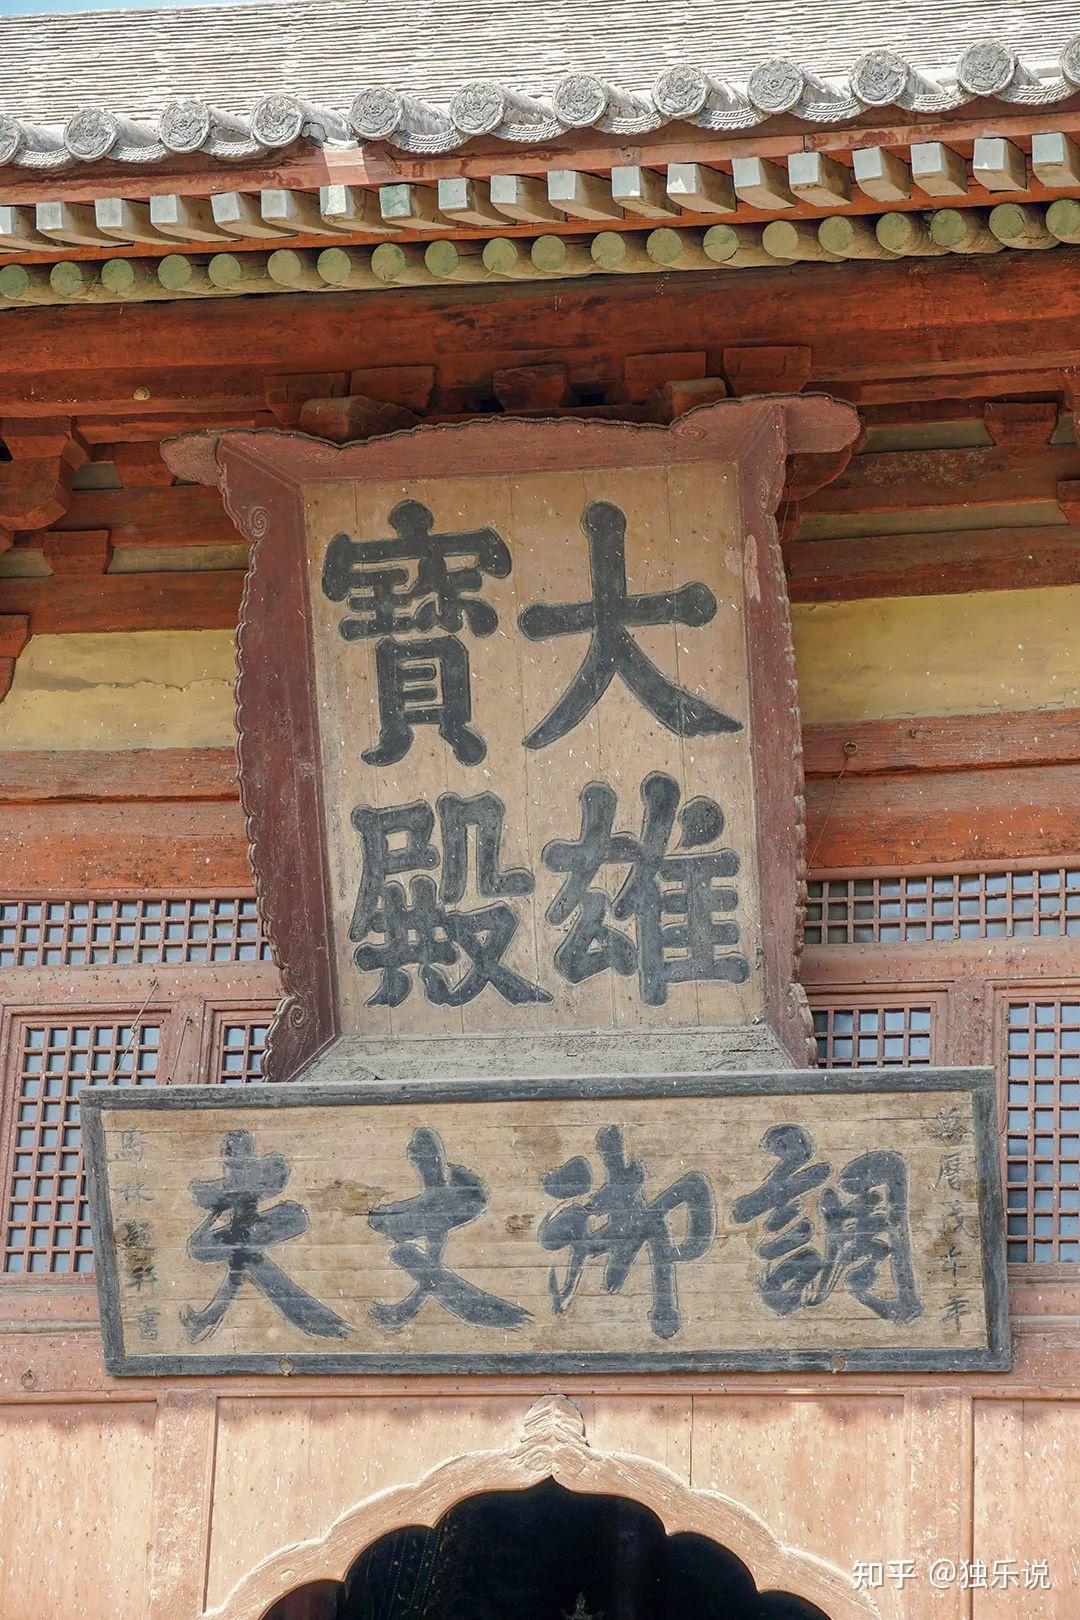 大雄
寶殿
萬曆戊午年
調御丈夫
馬林題并書
知乎 @独乐说